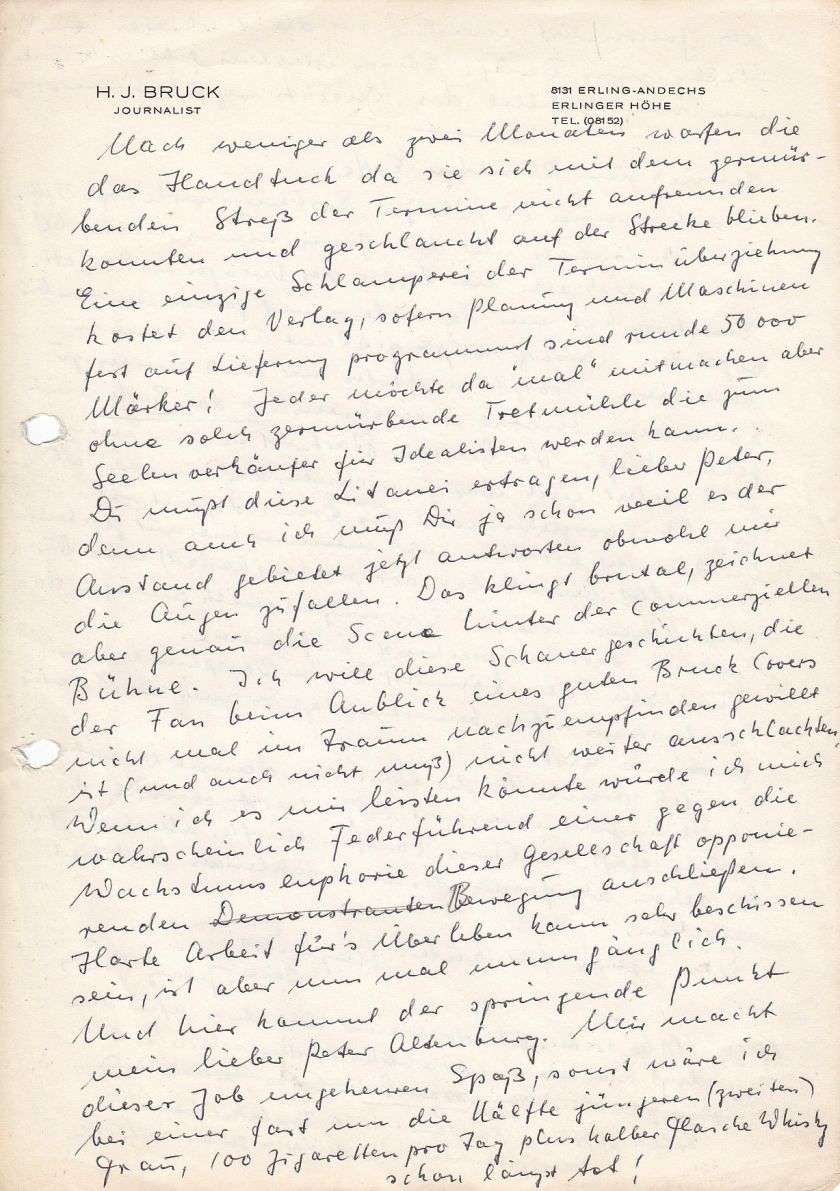 H. J. BRUCK
JOURNALIST
8131 ERLING-ANDECHS
ERLINGER HÖHE
TEL. (08152)
Nach weniger als zwei Monaten warfen die
das Handtuch da sie sich mit dem zermür-
benden Streß der Termine nicht anfreunden
konnten und geschlaucht auf der Strecke blieben.
Eine einzige Schlamperei der Terminüberziehung
kostet den Verlag, sofern Planung und Maschinen
fest auf Lieferung programmiert sind runde 50 000
Märker! Jeder möchte da "mal" mitmachen aber
ohne solch zermürbende Tretmühle die zum
Seelenverkäufer für Idealisten werden kann.
Du mußt diese Litanei ertragen, lieber Peter,
denn auch ich muß Dir ja schon weil es der
Anstand gebietet jetzt antworten obwohl mir
die Augen zufallen. Das klingt brutal, zeichnet
aber genau die Scene hinter der commerziellen
Bühne. Ich will diese Schauergeschichten, die
der Fan beim Anblick eines guten Bruck Covers
nicht mal im Traum nachzuempfinden gewillt
ist (und auch nicht muß) nicht weiter ausschlachten.
Wenn ich es mir leisten könnte würde ich mich
wahrscheinlich Federführend einer gegen die
Wachstumseuphorie dieser Gesellschaft opponie-
renden Demonstranten Bewegung anschließen.
Harte Arbeit für's Überleben kann sehr beschissen
sein, ist aber nun mal unumgänglich.
Und hier kommt der springende Punkt
mein lieber Peter Altenburg. Mir macht
dieser Job ungeheuren Spaß, sonst wäre ich
bei einer fast um die Hälfte jüngeren (zweiten)
Frau, 100 Zigaretten pro Tag plus halber Flasche Whisky
schon längst tot!